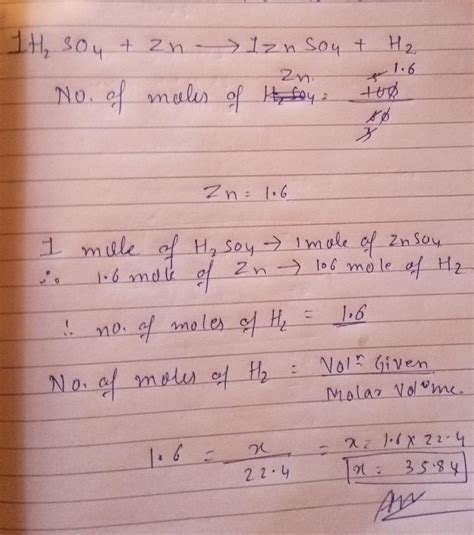 1H₂SO₄ + Zn → 1ZnSO₄ + H₂
No. of moles of Zn = 1.6
Zn = 1.6
1 mole of H₂SO₄ → 1 mole of ZnSO₄
∴ 1.6 mole of Zn → 1.6 mole of H₂
∴ no. of moles of H₂ = 1.6
No. of moles of H₂ = Volⁿ Given / Molar Volume.
1.6 = x / 22.4 = x = 1.6 x 22.4
x = 35.84